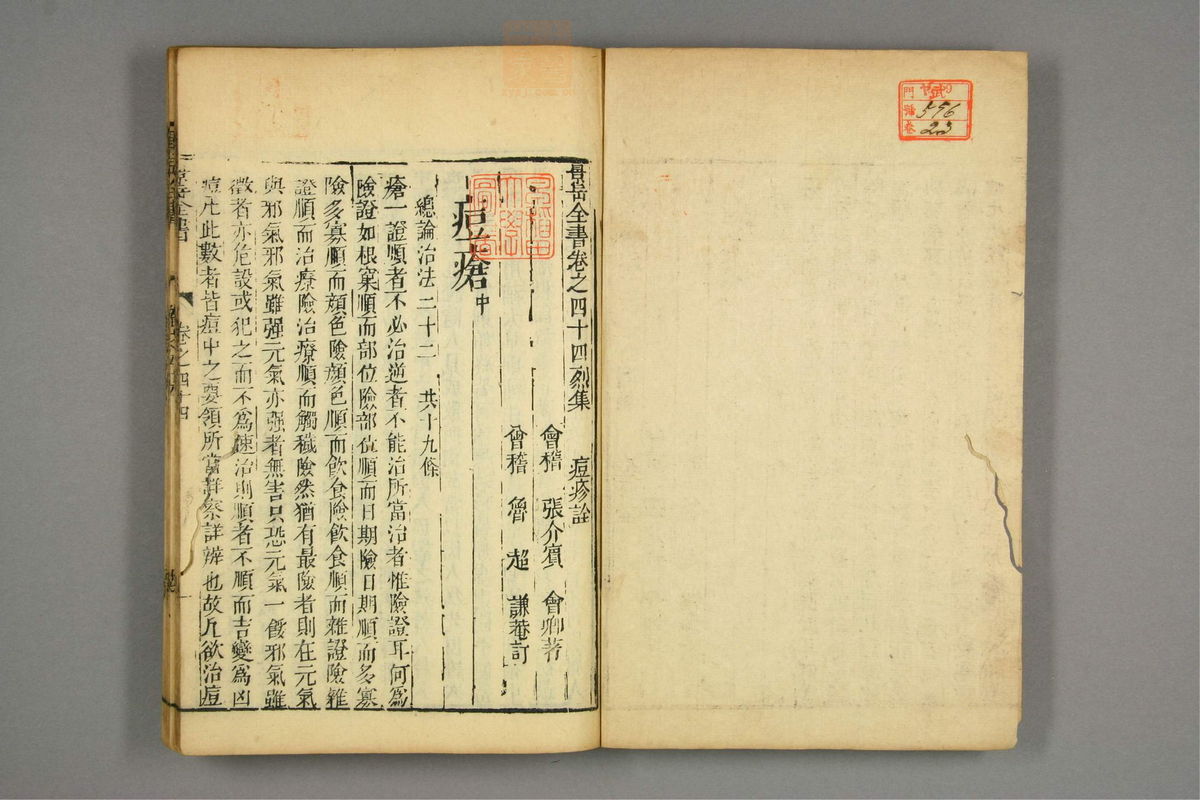 武
門
號 596
卷 23
景岳全書卷之四十四烈集 痘疹詮
會稽 張介賓 會卿著
會稽 魯 超 謙菴訂
痘瘡中
總論治法二十二 共十九條
瘡一證順者不必治逆者不能治所當治者惟險證耳何爲
險證如根窠順而部位險部位順而日期險日期順而多寡
險多寡順而顏色險顏色順而飲食險飲食順而雜證險雜
證順而治療險治療順而觸穢險然猶有最險者則在元氣
與邪氣邪氣雖强元氣亦强者無害只恐元氣一餒邪氣雖
微者亦危設或犯之而不爲速治則順者不順而吉變爲凶
痘凡此數者皆痘中之要領所當詳察詳辨也故凡欲治痘
景岳全書
卷之四十四